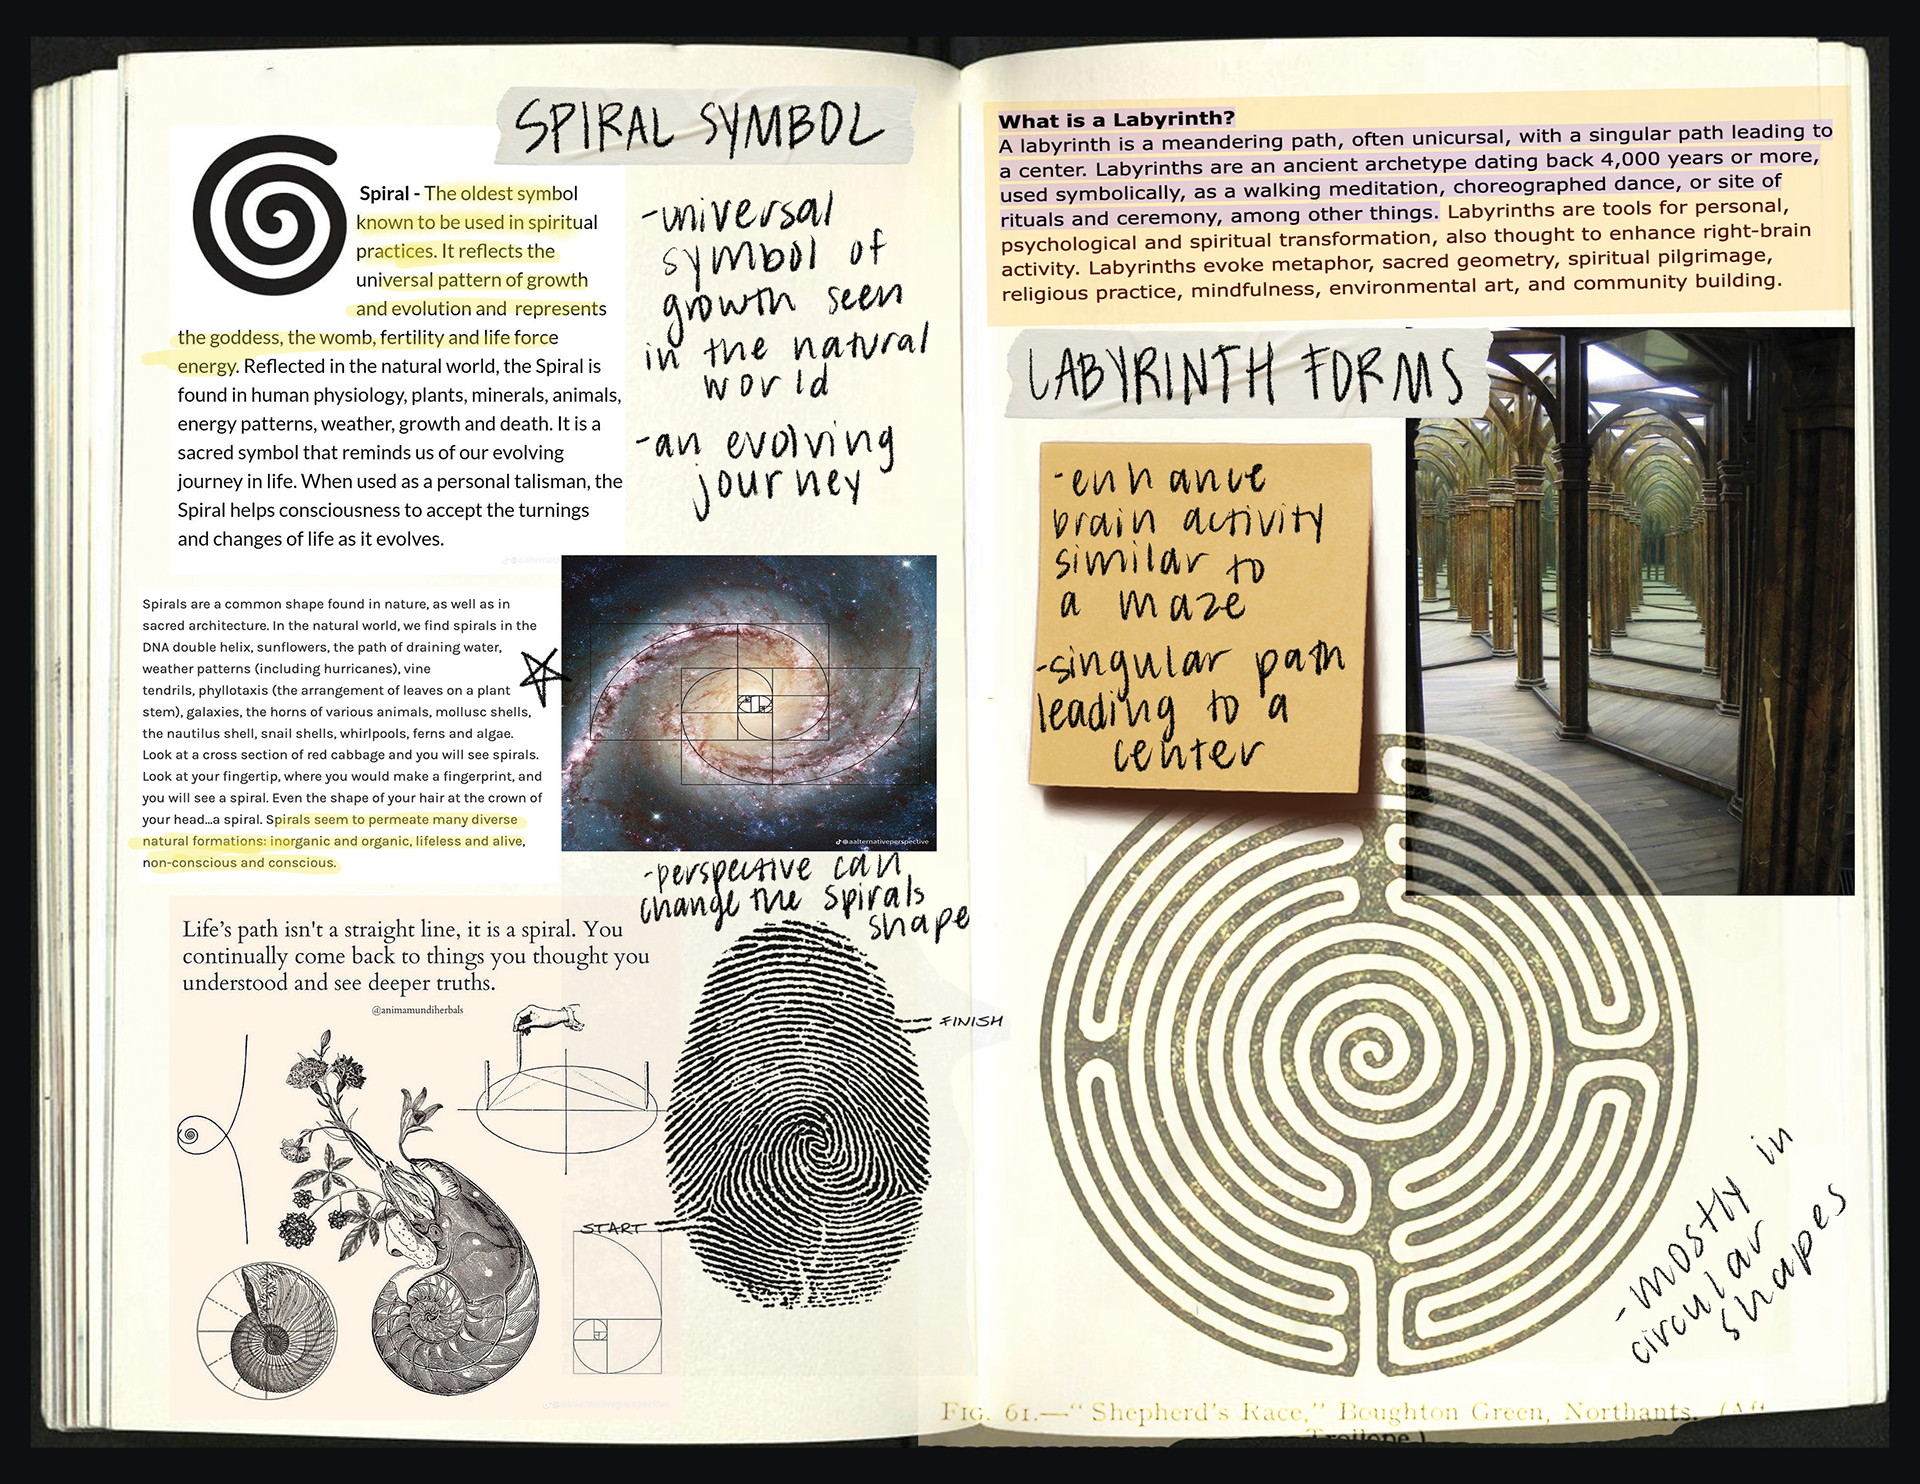 SPIRAL SYMBOL
Spiral - The oldest symbol
known to be used in spiritual
practices. It reflects the
universal pattern of growth
and evolution and represents
the goddess, the womb, fertility and life force
energy. Reflected in the natural world, the Spiral is
found in human physiology, plants, minerals, animals,
energy patterns, weather, growth and death. It is a
sacred symbol that reminds us of our evolving
journey in life. When used as a personal talisman, the
Spiral helps consciousness to accept the turnings
and changes of life as it evolves.
-universal
symbol of
growth seen
in the natural
world
-an evolving
journey
Spirals are a common shape found in nature, as well as in
sacred architecture. In the natural world, we find spirals in the
DNA double helix, sunflowers, the path of draining water,
weather patterns (including hurricanes), vine
tendrils, phyllotaxis (the arrangement of leaves on a plant
stem), galaxies, the horns of various animals, mollusc shells,
the nautilus shell, snail shells, whirlpools, ferns and algae.
Look at a cross section of red cabbage and you will see spirals.
Look at your fingertip, where you would make a fingerprint, and
you will see a spiral. Even the shape of your hair at the crown of
your head...a spiral. Spirals seem to permeate many diverse
natural formations: inorganic and organic, lifeless and alive,
non-conscious and conscious.
@aalternativeperspective
-perspective can
change the spirals
shape
Life's path isn't a straight line, it is a spiral. You
continually come back to things you thought you
understood and see deeper truths.
@animamundiherbals
FINISH
START
@aalternativeperspective
What is a Labyrinth?
A labyrinth is a meandering path, often unicursal, with a singular path leading to
a center. Labyrinths are an ancient archetype dating back 4,000 years or more,
used symbolically, as a walking meditation, choreographed dance, or site of
rituals and ceremony, among other things. Labyrinths are tools for personal,
psychological and spiritual transformation, also thought to enhance right-brain
activity. Labyrinths evoke metaphor, sacred geometry, spiritual pilgrimage,
religious practice, mindfulness, environmental art, and community building.
LABYRINTH FORMS
-enhance
brain activity
similar to
a maze
-singular path
leading to a
center
-mostly in
circular
shapes
FIG. 61.—"Shepherd's Race," Boughton Green, Northants. (Af
Trollope.)